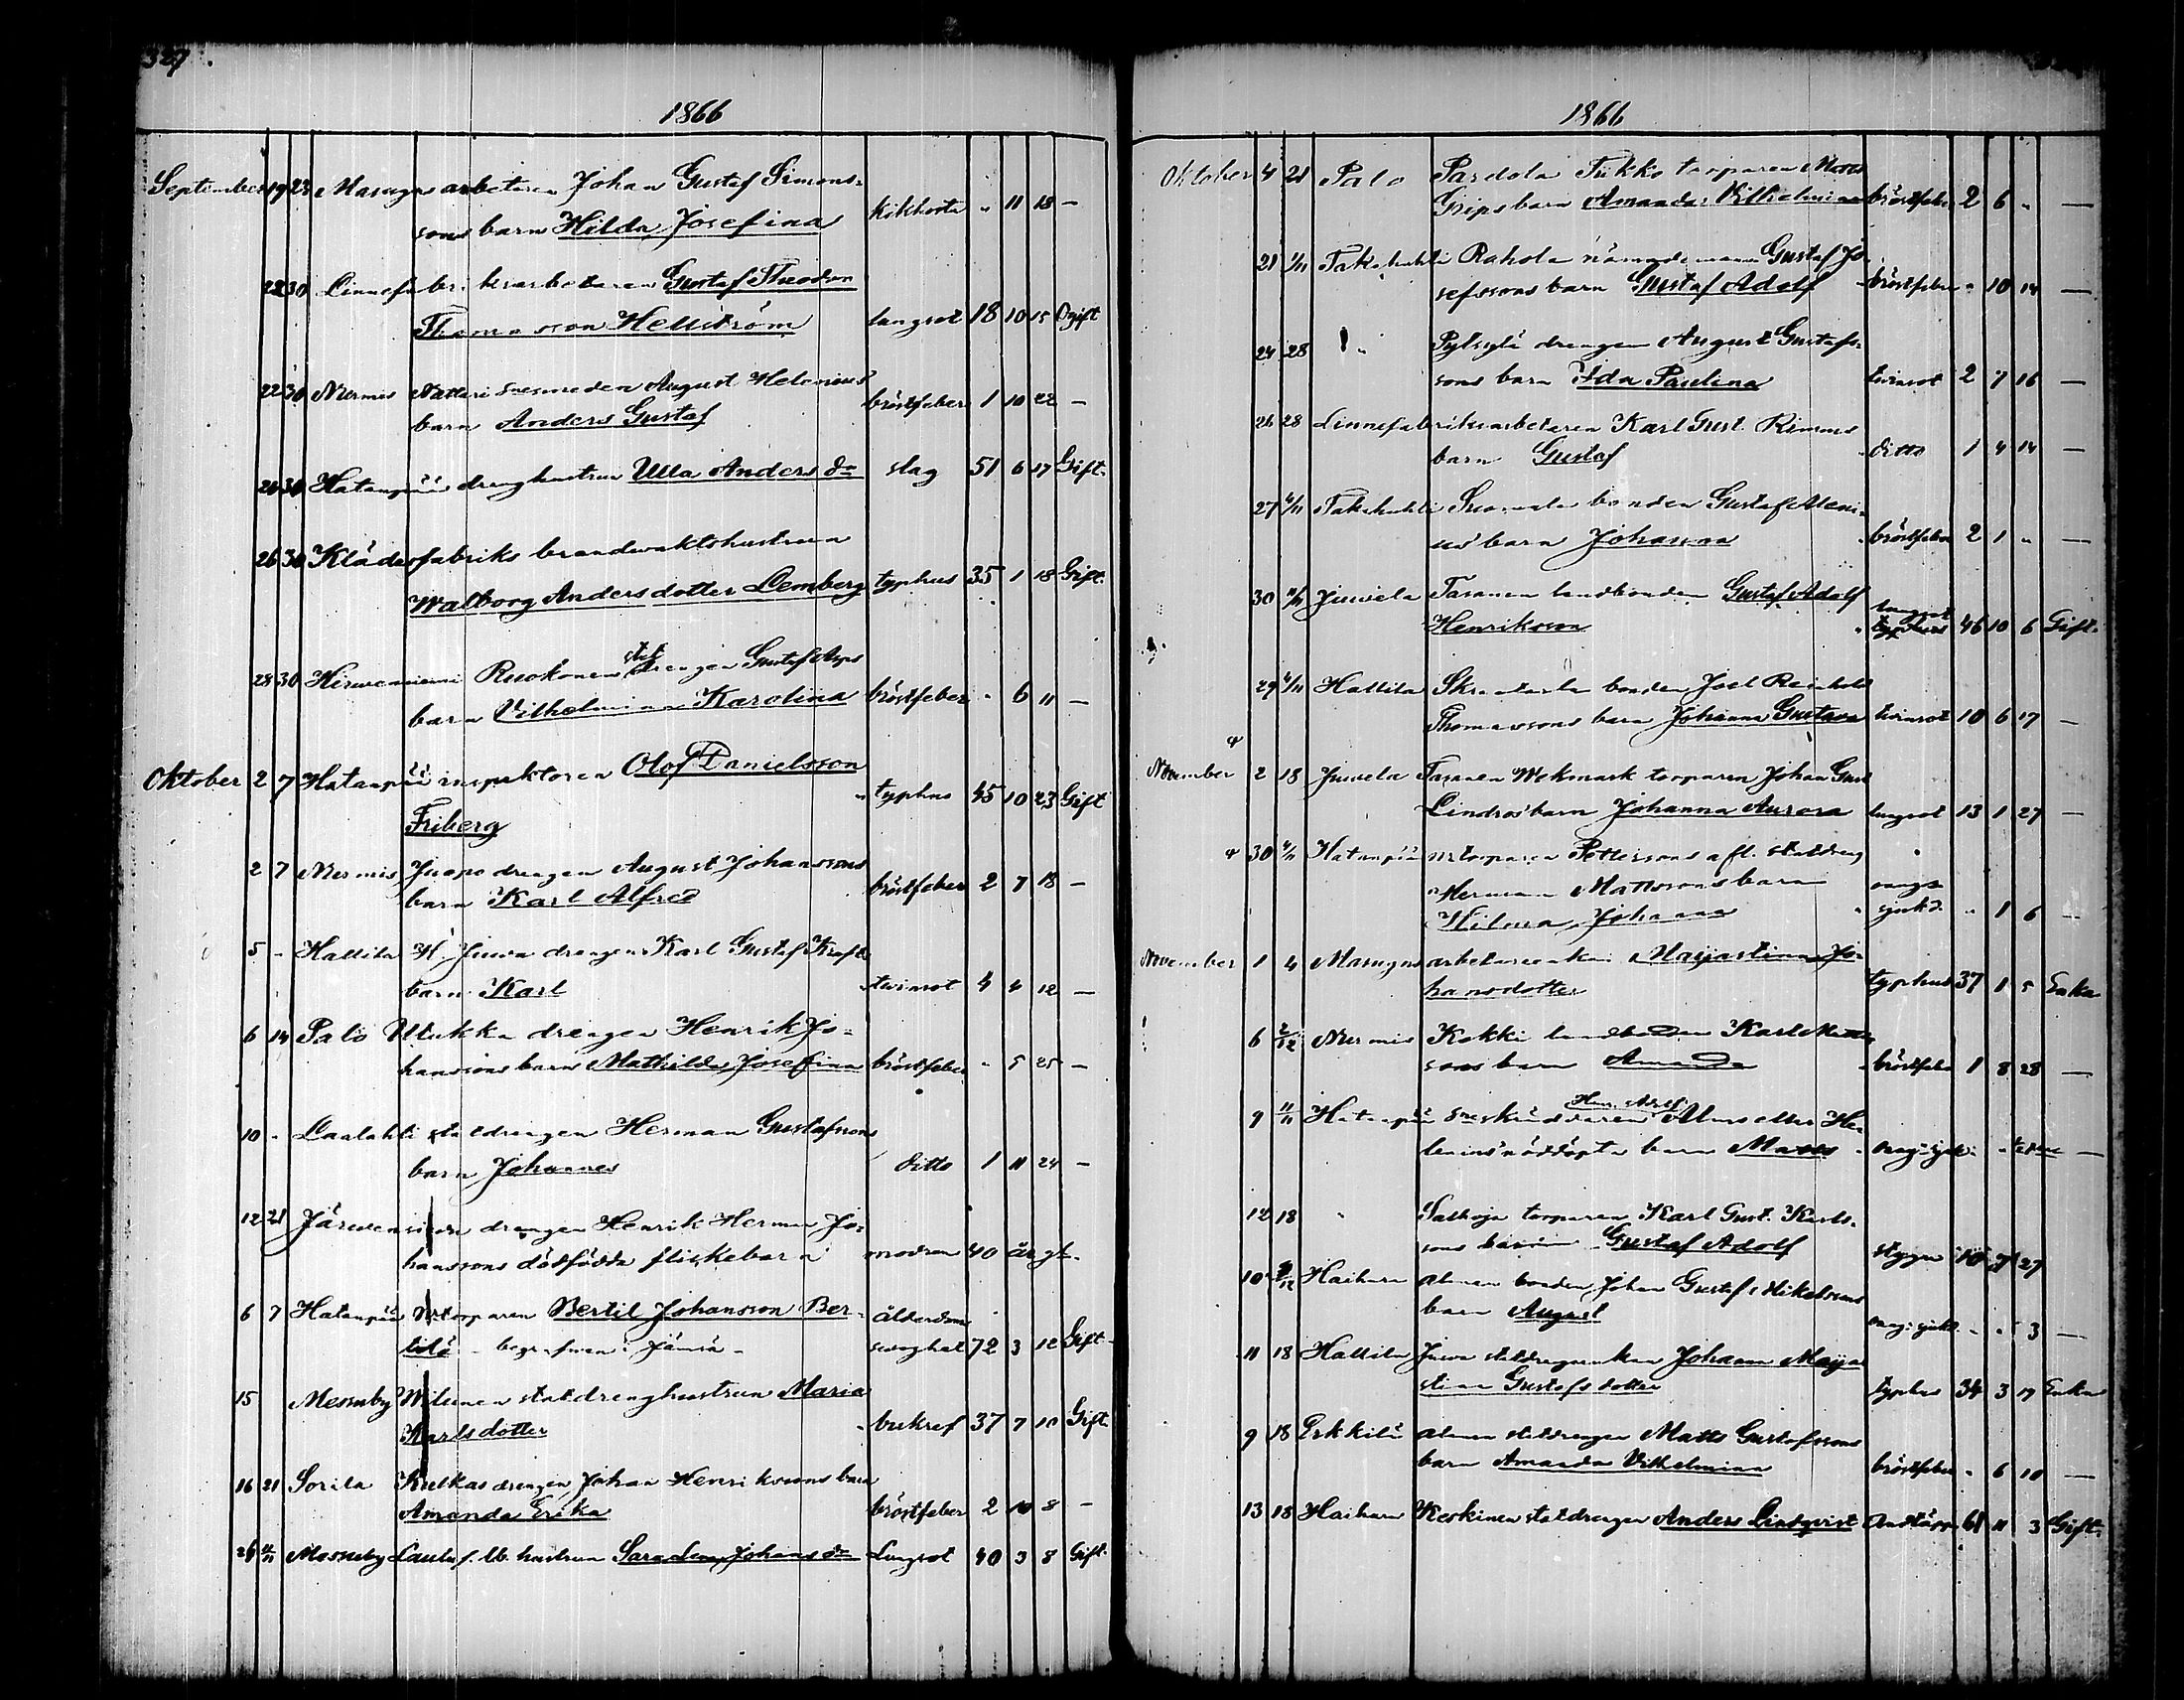 327.
1866
September 19 23 Masugns arbetaren Johan Gustaf Simons-
sons barn Hilda Josefina kikhosta " 11 18 —
22 30 Linnefabriksarbetaren Gustaf Theodor
Thomasson Hellström lungsot 18 10 15 Ogift
22 30 Nurmis Nattari smeden August Helenius
barn Anders Gustaf bröstfeber 1 10 22 —
26 30 Hatanpää drenghustrun Ulla Anders dr slag 51 6 17 Gift
26 30 Klädesfabriks brandvaktshustrun
Walborg Andersdotter Lemberg typhus 35 1 18 Gift
28 30 Hirwenniemi Ruokonen stat drengen Gustaf Asps
barn Vilhelmina Karolina bröstfeber " 6 11 —
Oktober 2 7 Hatanpää inspektoren Olof Danielsson
Friberg typhus 45 10 23 Gift
2 7 Nurmis Juopo drengen August Johanssons
barn Karl Alfred bröstfeber 2 7 18 —
5 - Hallila H. Juwa drengen Karl Gustaf Krafts
barn Karl twinsot 4 4 12 —
6 14 Palo Utukka drengen Henrik Jo-
hanssons barn Mathilda Josefina bröstfeber " 5 25 —
10 - Laalahti statdrengen Herman Gustafssons
barn Johannes ditto 1 11 24 —
12 21 Järwensivu drengen Henrik Herman Jo-
hanssons dödfödda flickebarn modren 40 år gl.
6 7 Hatanpää torparen Bertil Johansson Ber- ålderdoms
tilä - begrafven i Jämsä - svaghet 72 3 12 Gift
15 Messuby Wilunen statdrenghustrun Maria
Karlsdotter bukref 37 7 10 Gift
16 21 Sorila Kulkas drengen Johan Henrikssons barn
Amanda Erika bröstfeber 2 10 8 —
26 4/11 Messuby hustrun Sara Lena Johans dr Lungsot 40 3 8 Gift
1866
Oktober 4 21 Palo Pardola Tukko torparen Matts
Grips barn Amanda Vilhelmina bröstfeber 2 6 " —
21 1/11 Takahuhti Rahola nämndemannen Gustaf Jo-
sefssons barn Gustaf Adolf bröstfeber " 10 14 —
24 28 " drengen August Gustafs-
sons barn Ida Paulina twinsot 2 7 16 —
26 28 Linnefabriksarbetaren Karl Gust. Rimmis
barn Gustaf ditto 1 4 14 —
27 4/11 Takahuhti bonden Gustaf
barn Johanna bröstfeber 2 1 " —
30 4/11 Juwela Tasanen landbonden Gustaf Adolf
Henriksson lungsot typhus 46 10 6 Gift
29 4/11 Hallila bonden Joel Reinhold
Thomassons barn Johanna Gustava twinsot 10 6 17 —
November 2 18 Juwela Tasanen Wekmark torparen Johan Gust
Lindros' barn Johanna Aurora lungsot 13 1 27 —
30 4/11 Hatanpää torparen Petterssons afl. statdreng
Herman Mattssons barn
Hilma Johanna okänd sjukd. " 1 6 —
November 1 4 Masugns arbetareenkan Majastina Jo-
hansdotter typhus 37 1 5 Enka
6 2/12 Nurmis Kokki landbonden Karl Matts
sons barn Amanda bröstfeber 1 8 28 —
9 11/11 Hatanpää Henr. Adolf
nöddöpta barn Matts
12 18 " Salhoja torparen Karl Gust. Karls-
sons barn Gustaf Adolf stygn 10 7 27
10 2/12 Haihara bonden Johan Gustaf Mikelssons
barn August " " 3 —
11 18 Hallila Juwa statdrengenkan Johanna Maja
stina Gustafsdotter typhus 34 3 17 Enka
9 18 Erkkilä statdrengen Matts Gustafssons
barn Amanda Vilhelmina bröstfeber " 6 10 —
13 18 Haihara Keskinen statdrengen Anders Lindqvist Andtäppa 61 11 3 Gift